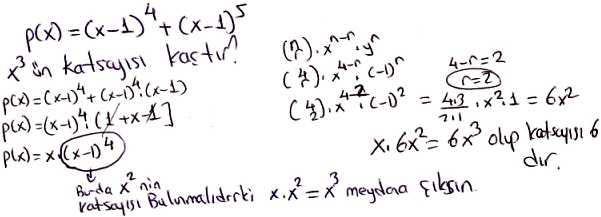 p(x) = (x-1)⁴ + (x-1)⁵
x³ ün katsayısı kaçtır?
p(x) = (x-1)⁴ + (x-1)⁴.(x-1)
p(x) = (x-1)⁴.[1+x-1]
p(x) = x.(x-1)⁴
Burda x² nin
katsayısı Bulunmalıdırki x.x² = x³ meydana çıksın.
(n/r).xⁿ⁻ʳ.yʳ
(4/r).x⁴⁻ʳ.(-1)ʳ
4-r=2
r=2
(4/2).x⁴⁻².(-1)² = 4.3/2.1 .x².1 = 6x²
x.6x² = 6x³ olup katsayısı 6
dır.